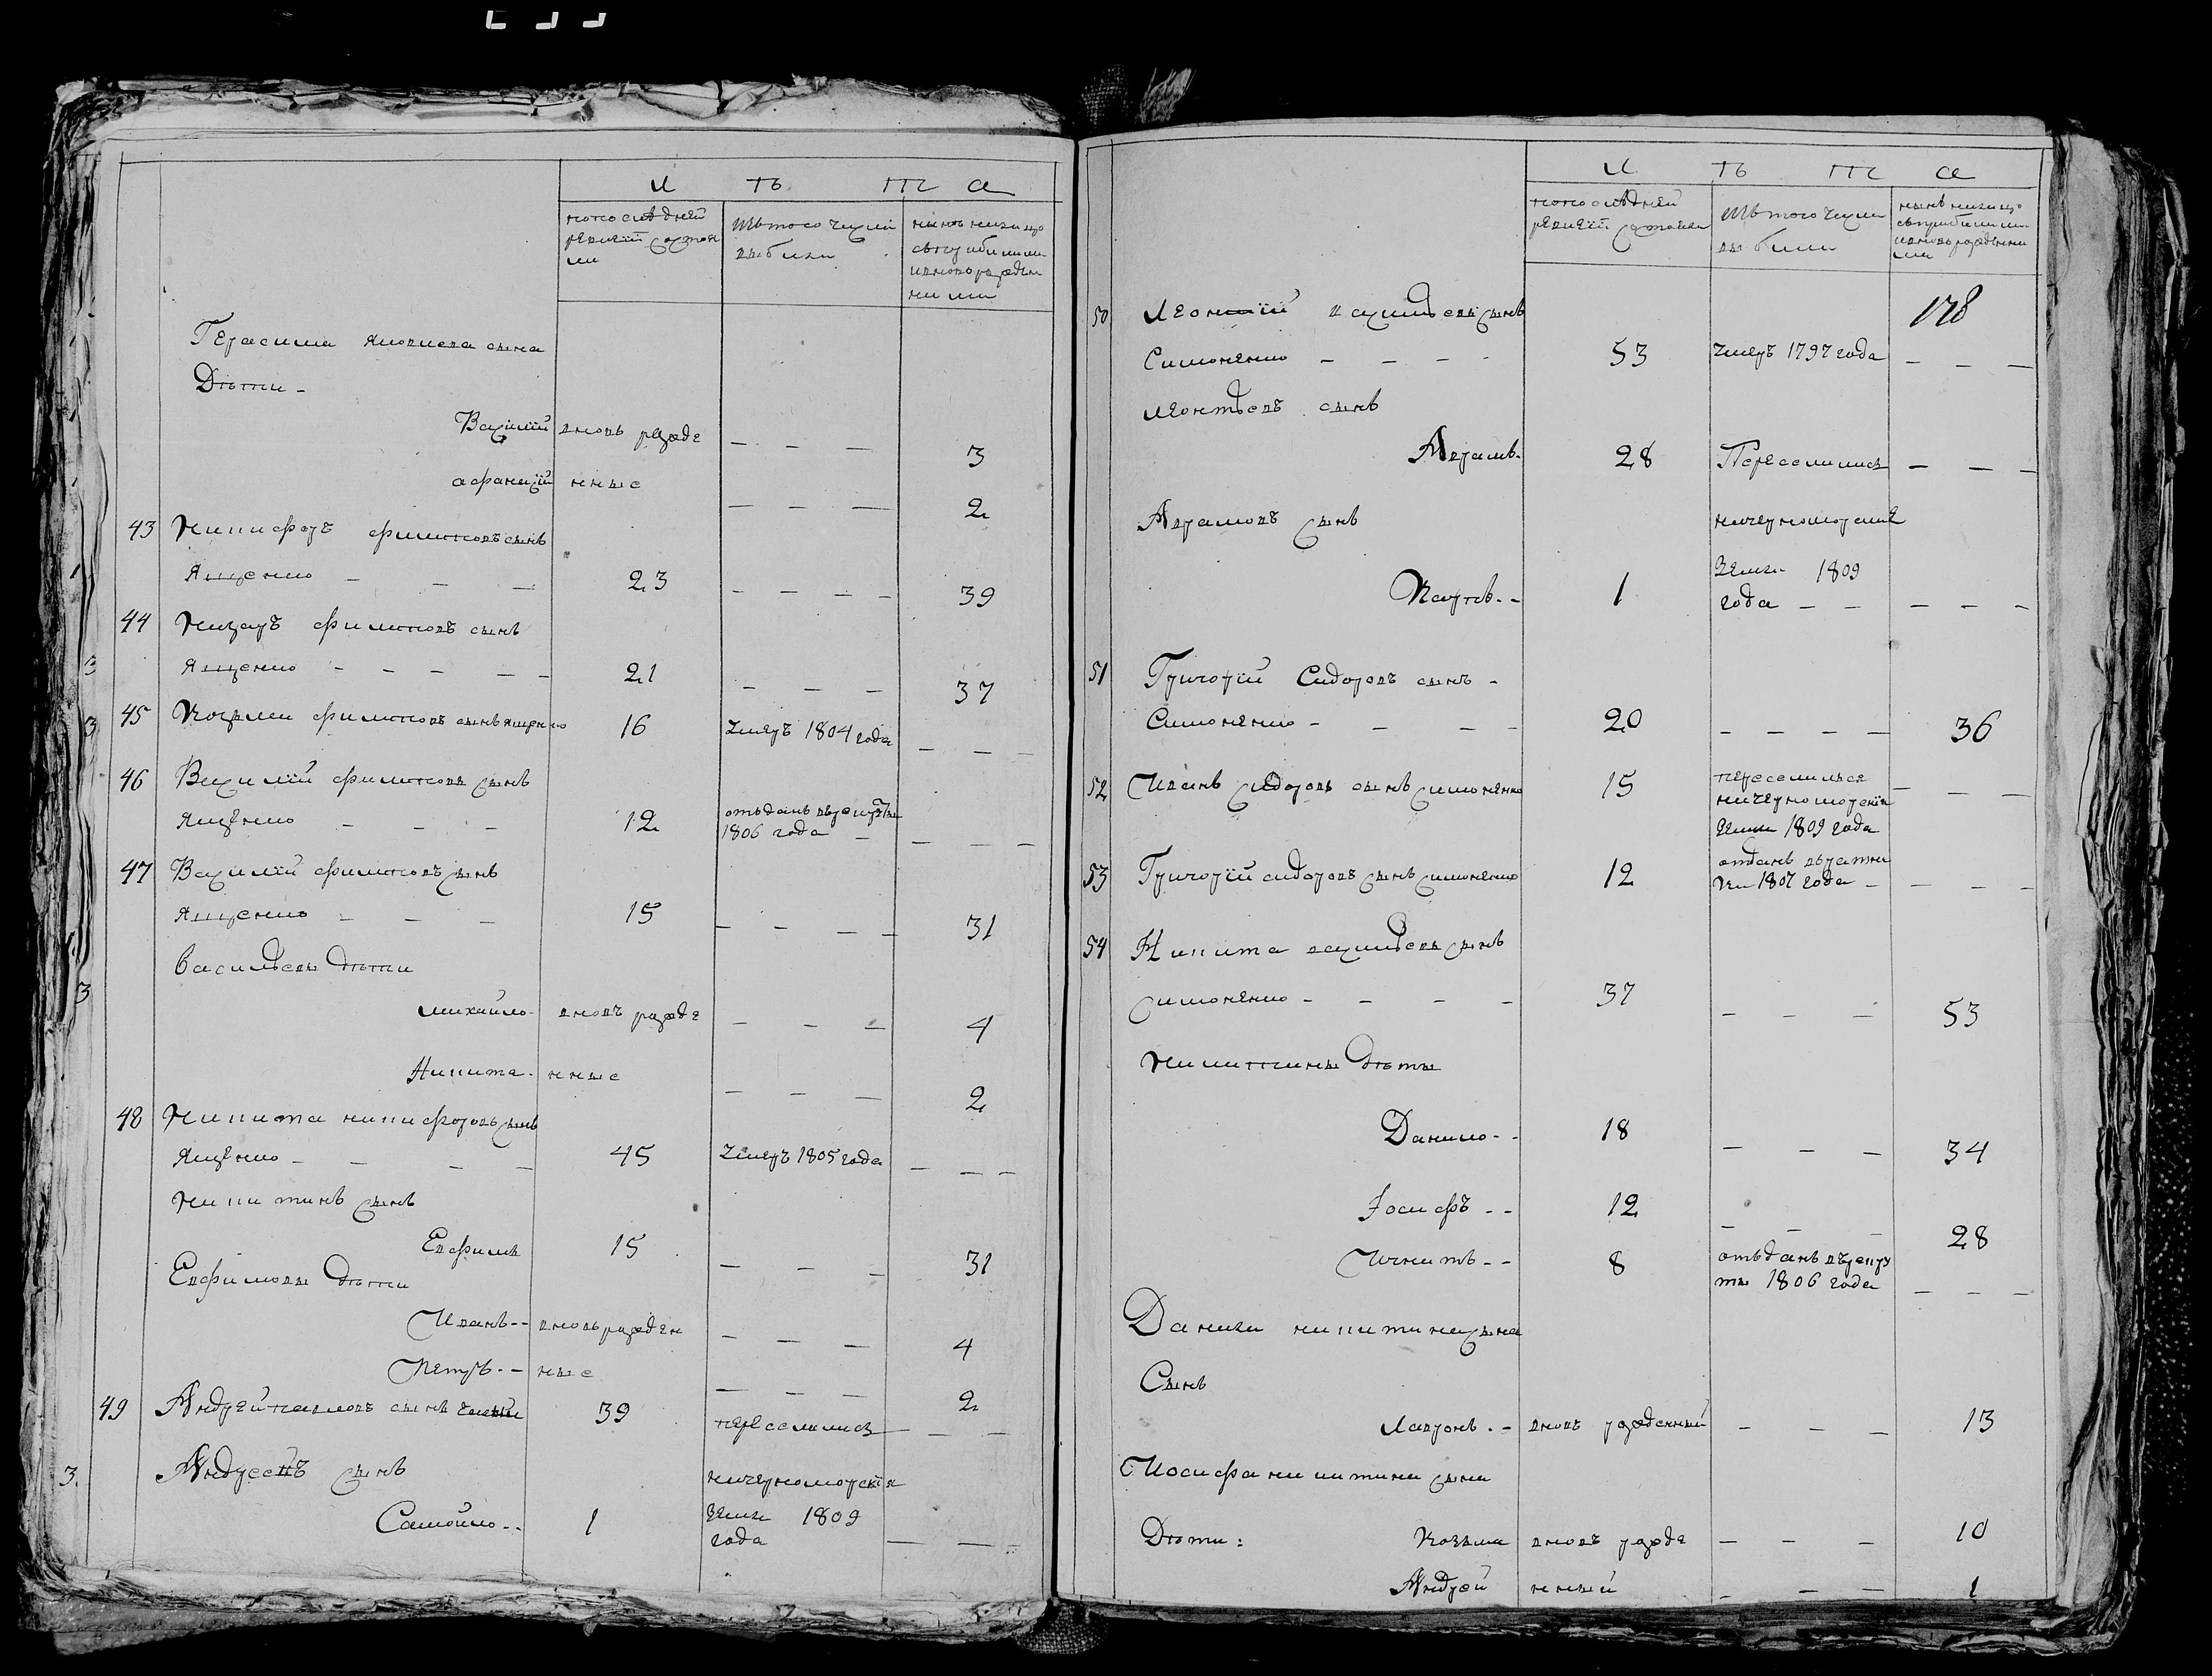 Л ѣ т а
попоследней ревизіи состояли
изъ того числа выбыли
ныне налицо съприбылыми ивновь рожденными
Герасима яковлева сына
Дети -
Василий вновь рожде - - - 3
афанасій нные - - - 2
43 Никифоръ филиповъ сынъ
Ященко - - - 23 - - - - 39
44 Назаръ филиповъ сынъ
Ященко - - - - - 21 - - - 37
45 Козьма филиповъ сынъ ященко 16 умеръ 1804 года - - -
46 Василій филиповъ сынъ
Ященко - - - 12 отъданъ врекруты
1806 года - - - -
47 Василій филиповъ сынъ
Ященко - - - 15 - - - - 31
Васильевы дѣти
михайло - вновъ рожде - - - 4
Никита - нные - - - 2
48 Никита никифоровъ сынъ
Ященко - - - - 45 умеръ 1805 года - - -
Никитинъ сынъ
Евфимъ 15 - - - 31
Евфимовы дѣти
Иванъ - - вновь рожден - - - 4
Петръ - - ные - - - 2
49 Андрей павловъ сынъ 39 переселились - - -
Андреевъ сынъ начерноморския
3. Самойло - - 1 земли 1809
года - - -
Л ѣ т а
попоследней ревизіи состояли
изъ того числа выбыли
ныне налицо съприбылыми ивновь рожденными
178
50 Леонтій васильевъ сынъ
Симоненко - - - - 53 умеръ 1797 года - - -
Леонтьевъ сынъ
Аврамъ - 28 Переселились - - -
Аврамовъ сынъ начерноморские
Карпъ - - 1 земли 1809
года - - - - -
51 Григорій Сидоровъ сынъ -
Симоненко - - - - 20 - - - - 36
52 Иванъ сидоровъ сынъ симоненко 15 переселился
начерноморския
земли 1809 года - - -
53 Григорій сидоровъ сынъ симоненко 12 отданъ вратни
ки 1807 года - - - -
54 Никита васильевъ сынъ
симоненко - - - - 37 - - - 53
Никитины дѣты
Данило - - 18 - - - 34
Іосифъ - - 12 - - - 28
Игнатъ - - 8 отъданъ въреркру
ты 1806 года - - -
Данила никитина сына
Сынъ
Лавронъ - - вновъ рожденный - - - 13
Иосифа никитина сына
Дѣти: Козьма вновъ рожде - - - 10
Андрей нный - - - 1